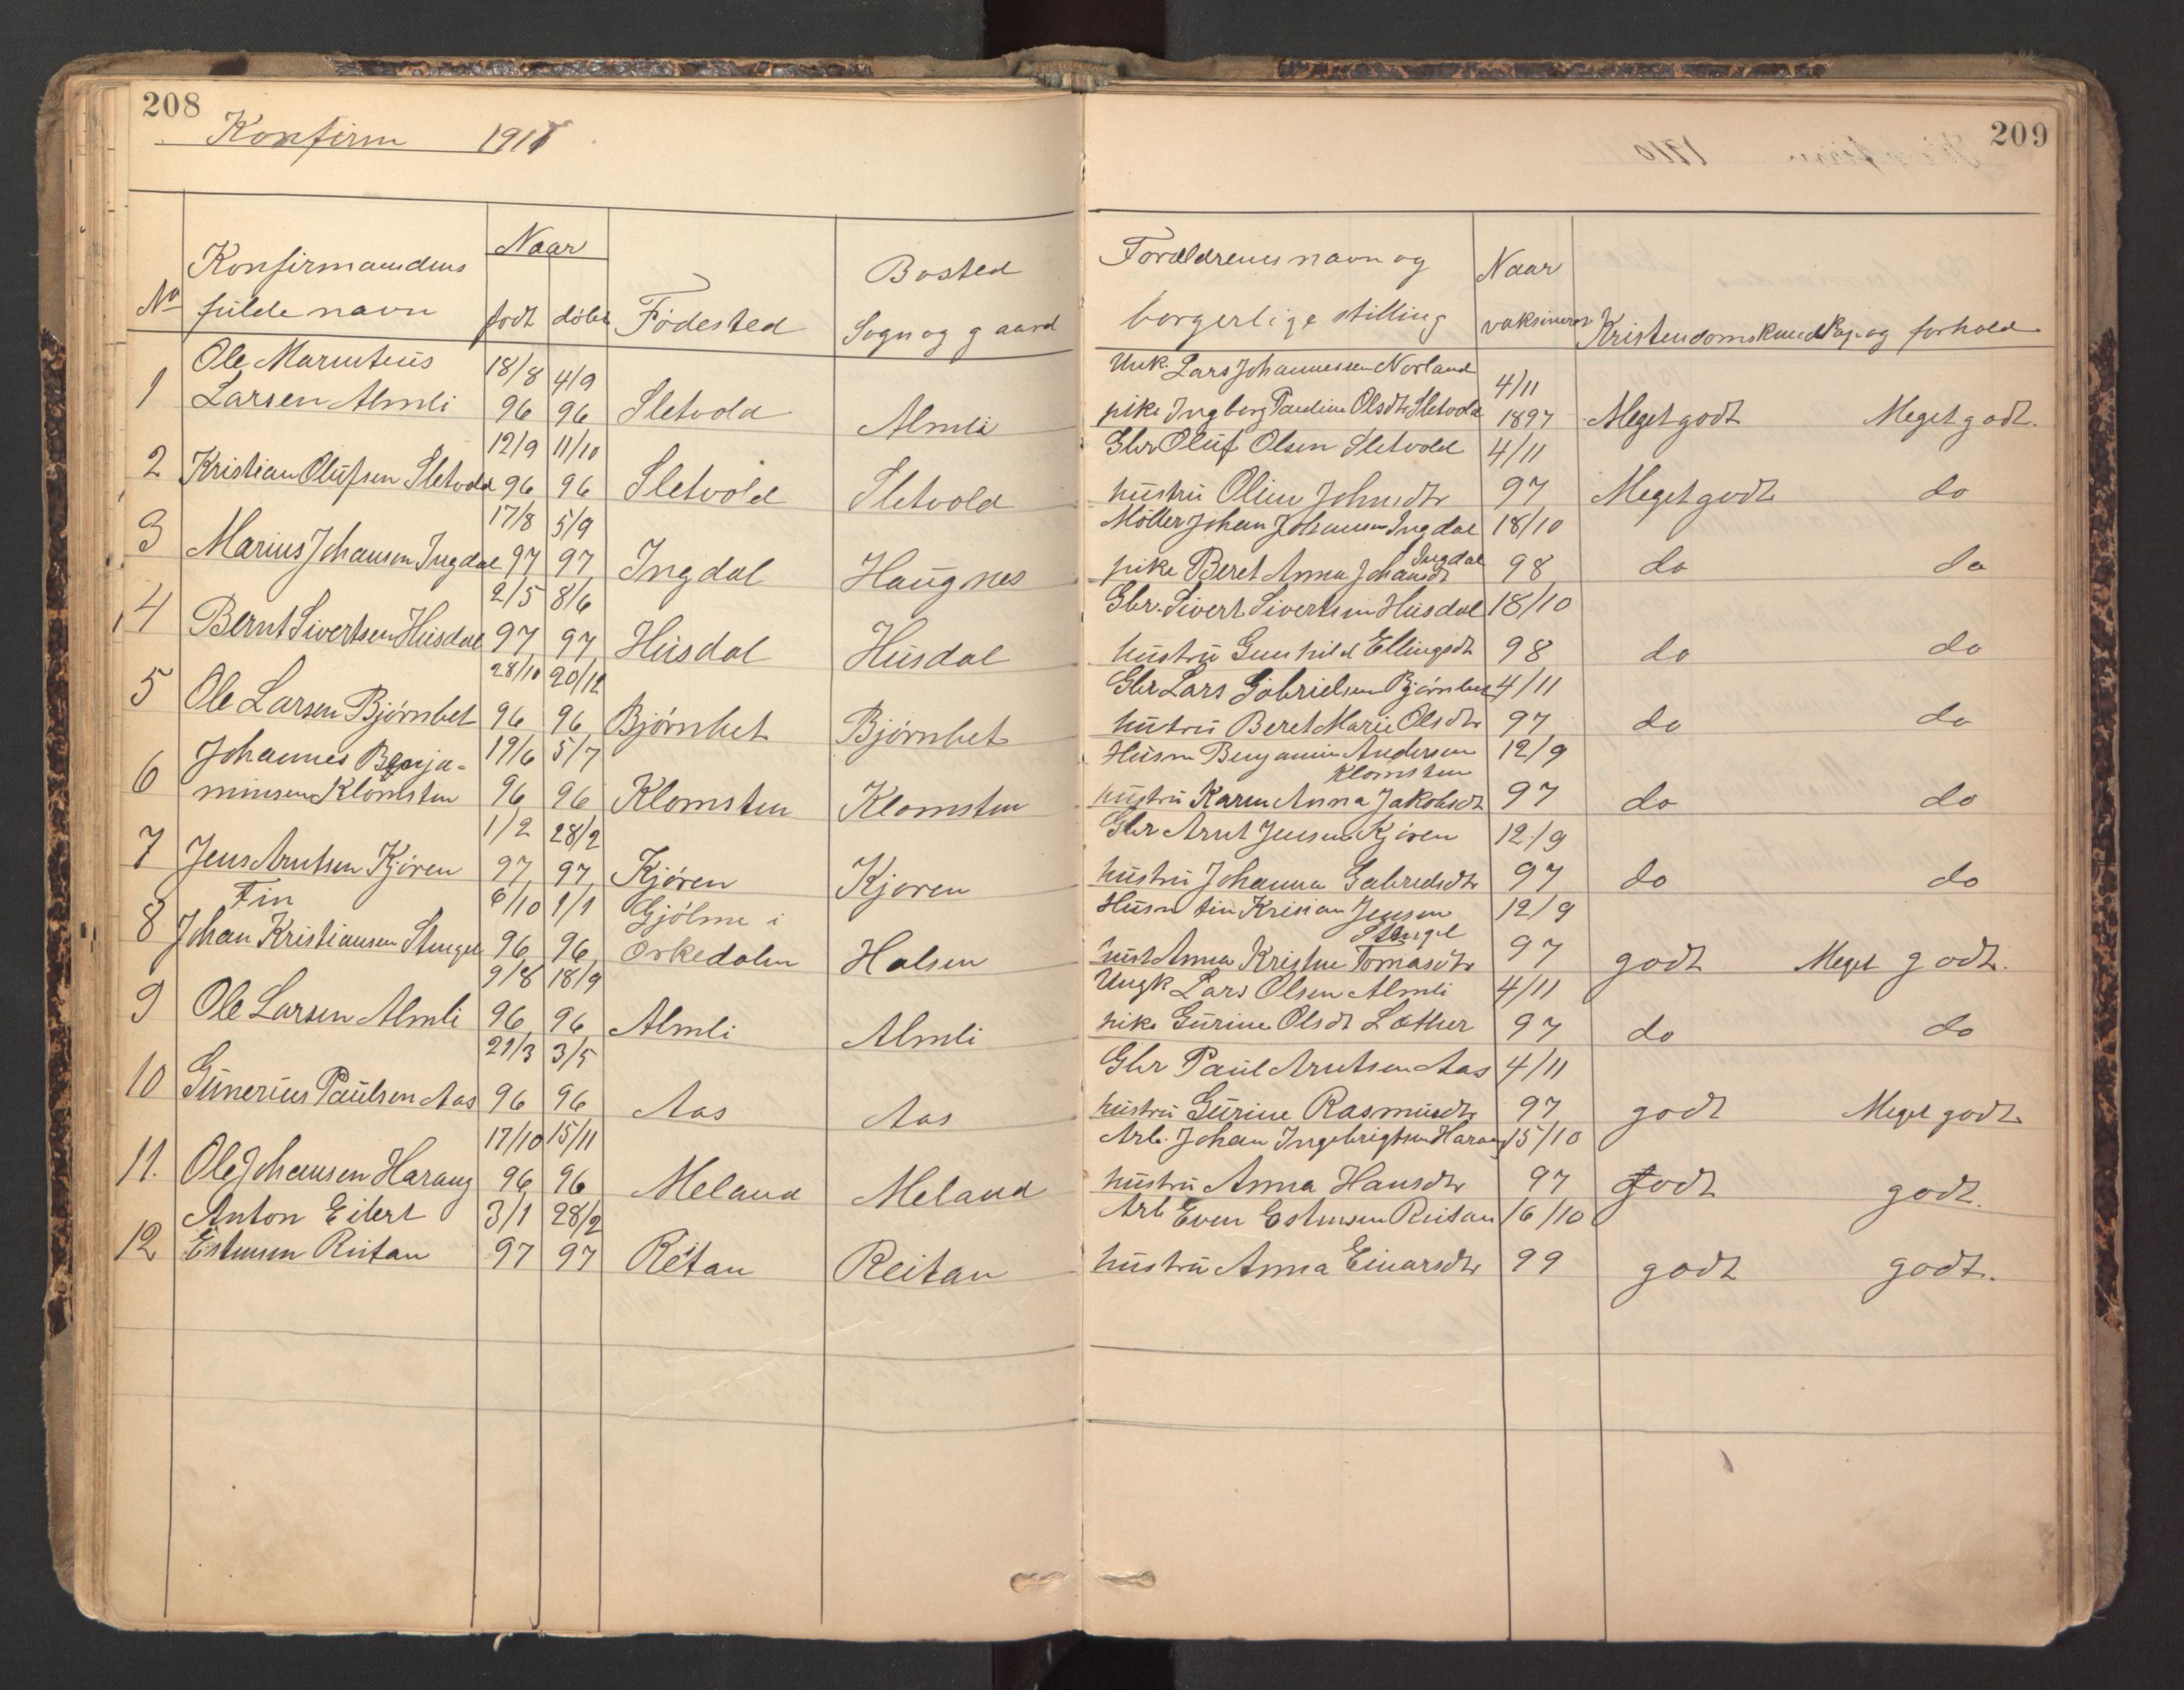 208
Konfirm 1911
209
Naar
Konfirmandens
Bosted
Forældrenes navn og
Naar
No fulde navn født døbt Födested Sogn og gaard
borgerlige stilling vaksineret Kristendomskundskap og forhold
Ole
18/8 4/9
Unk. Lars Johannessen Norland
4/11
1 Larsen Almli 96 96 Sletvold Almli
pike Ingborg Pauline Olsdtr Sletvold 1897 Meget godt Meget godt.
12/9 11/10
Gbr Oluf Olsen Sletvold 4/11
2 Kristian Olufsen Sletvold 96 96 Sletvold Sletvold
hustru Oline Johnsdtr 97 Meget godt do
17/8 5/9
Möller Johan Johansen Ingdal 18/10
3 Marius Johansen Ingdal 97 97 Ingdal Haugnes
Ingdal
pike Beret Anna Johansdt 98 do do
2/5 8/6
Gbr. Sivert Sivertsen Husdal 18/10
4 Bernt Sivertsen Husdal 97 97 Husdal Husdal
hustru Gunhild Ellingsdt 98 do do
28/10 20/12
Gbr Lars Gabrielsen Bjørnbet 4/11
5 Ole Larsen Bjørnbet 96 96 Bjørnbet Bjørnbet
hustru Beret Marie Olsdtr 97 do do
Johannes Benja-
19/6 5/7
Husm Benjamin Andersen 12/9
Klomsten
6 minsen Klomsten 96 96 Klomsten Klomsten
hustru Karen Anna Jakobsdt 97 do do
1/2 28/2
Gbr Arnt Jensen Kjøren 12/9
7 Jens Arntsen Kjøren 97 97 Kjøren Kjøren
hustru Johanna Gabrielsdtr 97 do do
Fin
6/10 1/1 Gjölme i
Husm fin Kristian Jensen 12/9
Stengel
8 Johan Kristiansen Stengel 96 96 Orkedalen Halsen
hust Anna Kristine Tomasdtr 97 godt Meget godt.
9/8 18/9
Ungk Lars Olsen Almli 4/11
9 Ole Larsen Almli 96 96 Almli Almli
pike Gurine Olsdt 97 do do
21/3 3/5
Gbr Paul Arntsen Aas 4/11
10 Gunerius Paulsen Aas 96 96 Aas Aas
hustru Gurine Rasmusdtr 97 godt Meget godt
17/10 15/11
Arb. Johan Ingebrigtsen Harang 15/10
11. Ole Johansen Harang 96 96 Meland Meland
hustru Anna Hansdtr 97 godt godt.
Anton Eilert 3/1 28/2
Arb Even Estensen Reitan 16/10
12 Estensen Reitan 97 97 Reitan Reitan
hustru Anna Einarsdtr 99 godt godt.